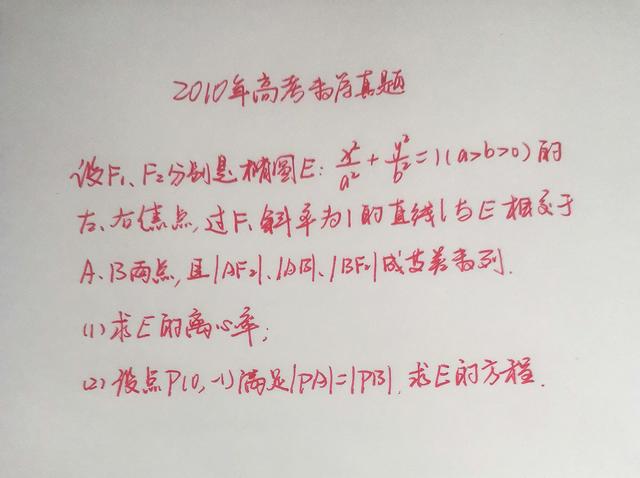 2010年高考数学真题
设F₁、F₂分别是椭圆E: x²/a² + y²/b² = 1 (a>b>0) 的
左、右焦点, 过F₁斜率为1的直线l与E相交于
A、B两点, 且|AF₂|、|AB|、|BF₂|成等差数列.
(1) 求E的离心率;
(2) 设点P(0,-1)满足|PA|=|PB|, 求E的方程.